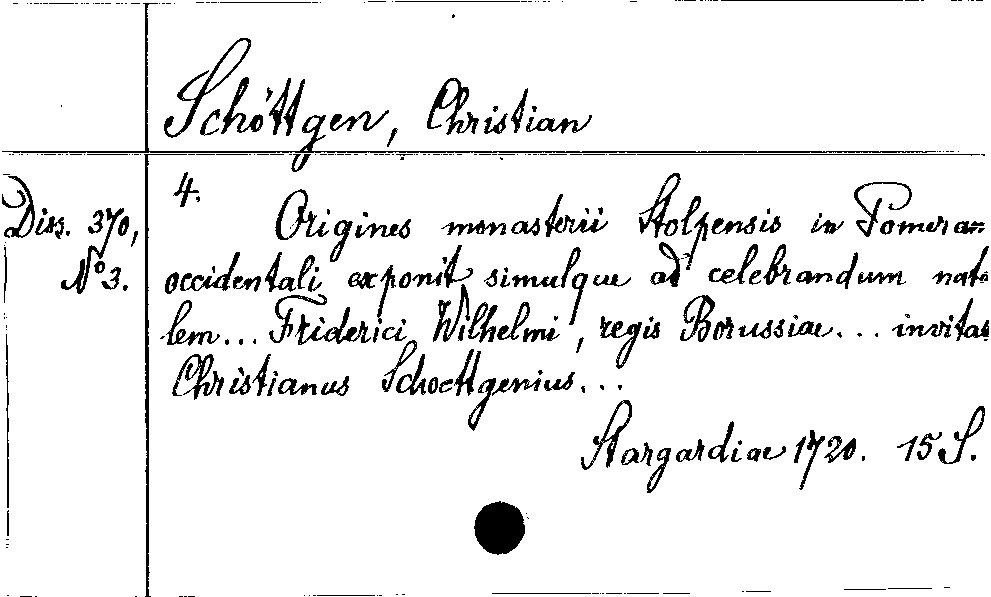 Schöttgen, Christian
Diss. 370,
No 3.
4.
Origines monasterii Stolpensis in Pomeran=
occidentali exponit simulque ad celebrandum nata
lem... Friderici Wilhelmi, regis Borussiae... invitat
Christianus Schoettgenius...
Stargardiae 1720. 15 S.